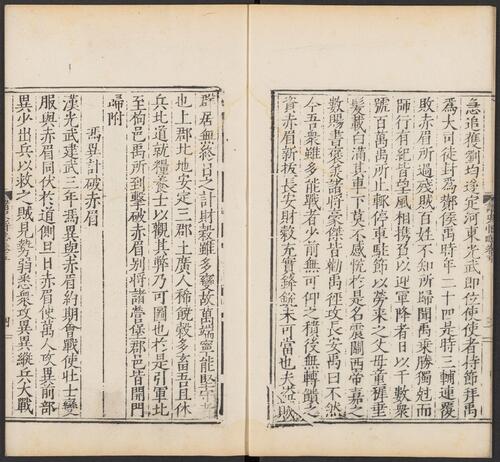 急追獲劉均遂定河東光武即位使使者持節拜禹
為大司徒封為酇侯禹時年二十四是時三輔連覆
敗赤眉所過殘賊百姓不知所歸聞禹乘勝獨尅而
師行有紀皆望風相携負以迎軍降者日以千數衆
號百萬禹所止輒停車駐節以勞來之父母童穉垂
髮戴白滿其車下莫不感悅於是名震關西帝嘉之
數賜書褒美諸將豪傑皆勸禹徑攻長安禹曰不然
今吾衆雖多能戰者少前無可仰之積後無轉饋之
資赤眉新拔長安財穀充實鋒銳未可當也夫盜賊
羣居無終日之計財穀雖多變故萬端寧能堅守
也上郡北地安定三郡土廣人稀饒穀多畜吾且休
兵北道就糧養士以觀其弊乃可圖也於是引軍北
至栒邑禹所到擊破赤眉別將諸營堡郡邑皆開門
歸附
馮異計破赤眉
漢光武建武三年馮異與赤眉約期會戰使壯士變
服與赤眉同伏於道側旦日赤眉使萬人攻異前部
異少出兵以救之賊見勢弱悉衆攻異異縱兵大戰